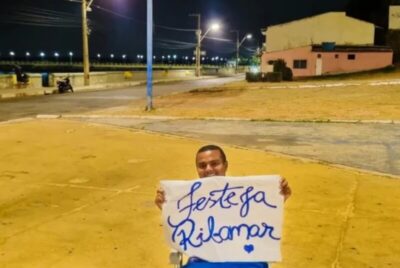 Festeja
Ribamar